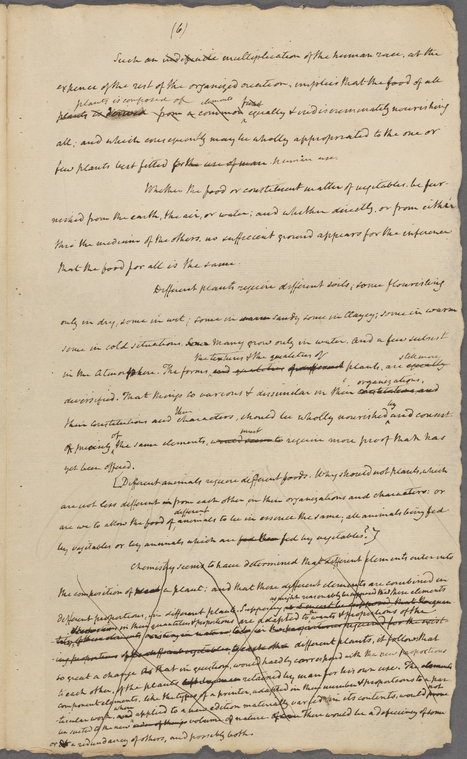 (6)
Such an indefinite multiplication of the human race, at the
expence of the rest of the organized creation, implies that the food of all
plants is composed of elements
plants is derived from a common equally & indiscriminately nourishing
all; and which consequently may be wholly appropriated to the one or
few plants best fitted for the use of man human use.
Whether the food or constituent matter of vegetables, be fur-
nished from the earth, the air, or water; and whether directly, or from either
thro the medium of the others, no sufficient ground appears for the inference
that the food for all is the same.
Different plants require different soils; some flourishing
only in dry, some in wet; some in sandy some in clayey; some in warm
some in cold situations. Many grow only in water. And a few subsist
the textures & the qualities of still more
in the Atmosphere. The forms, plants, are equally
organizations,
diversified. That things so various & dissimilar in their constitutions and
their by
their constitutions and characters, should be wholly nourished and consist
of must
precisely the same elements, would seem to require more proof than has
yet been offered.
[Different animals require different foods. Why should not plants, which
are not less different from each other in their organizations and characters: or
different
are we to allow the food of animals to be in essence the same, all animals being fed
by vegetables or by animals which are fed by vegetables?]
Chemistry seems to have determined that different elements enter into
the composition of a plant; and that these different elements are combined in
different proportions, in different plants. Supposing
quantities & proportions are adapted to
different plants, it follows that
so great a change as that in question, would hardly correspond with the new proportions
to each other, of the plants retained by man for his own use. The
component elements, like the types of a printer, adapted in their number & proportions to a par-
ticular work, when applied to a new edition materially varied in its contents, would not
be suited to the new volume of nature there would be a deficiency of some
or a redundancy of others, and possibly both.